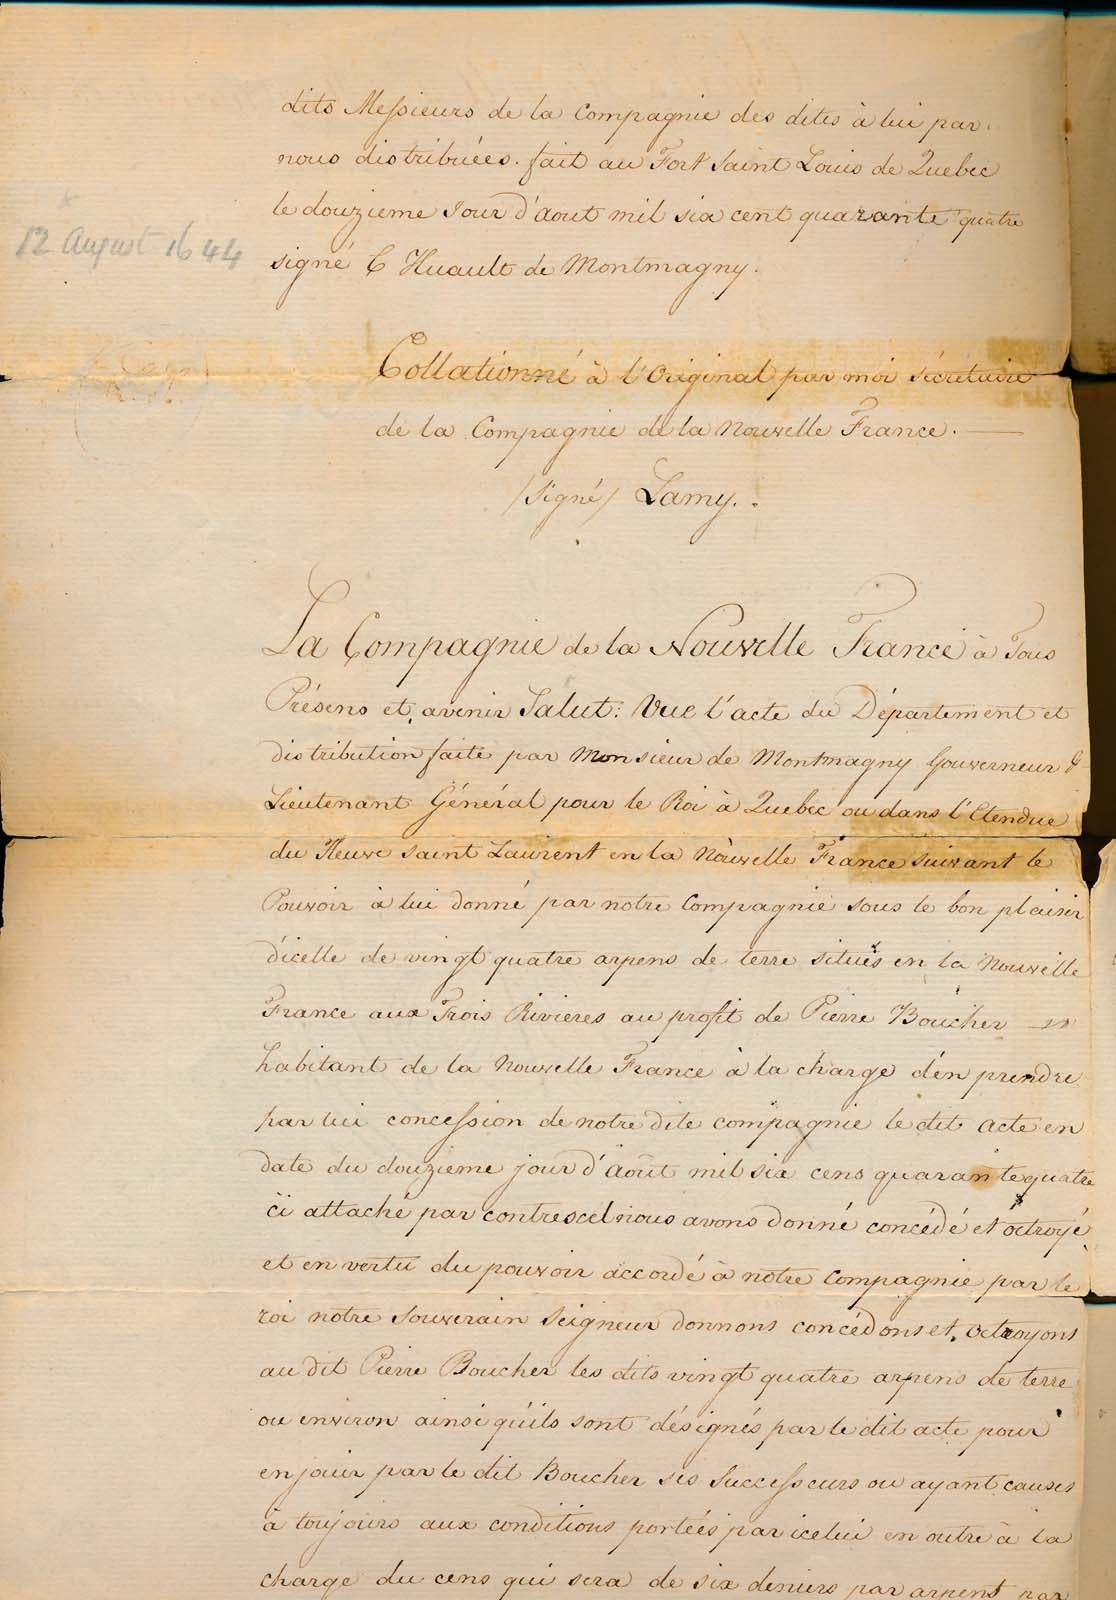 dits Messieurs de la Compagnie des dites à lui par
nous distribuées. fait au Fort Saint Louis de Quebec
le douzieme Jour d'aout mil six cent quarante quatre
12 August 1644
signé C Huault de Montmagny.
Collationné à l'Original par moi sécrétaire
de la Compagnie de la Nouvelle France.
/Signé/ Lamy.
La Compagnie de la Nouvelle France à Tous
Présens et avenir Salut: Vue l'acte du Département et
distribution faite par Monsieur de Montmagny Gouverneur &
Lieutenant Général pour le Roi à Quebec ou dans l'Etendue
du Fleuve saint Laurent en la Nouvelle France suivant le
Pouvoir à lui donné par notre Compagnie sous le bon plaisir
d'icelle de vingt quatre arpens de terre situés en la Nouvelle
France aux Trois Rivieres au profit de Pierre Boucher
habitant de la Nouvelle France à la charge d'en prendre
par lui concession de notre dite compagnie le dit acte en
date du douzieme jour d'Août mil six cens quarante quatre
ci attaché par contrescel nous avons donné concédé et octroyé
et en vertu du pouvoir accordé à notre Compagnie par le
roi notre souverain seigneur donnons concédons et octroyons
au dit Pierre Boucher les dits vingt quatre arpens de terre
ou environ ainsi qu'ils sont désignés par le dit acte pour
en jouir par le dit Boucher ses Successeurs ou ayant causes
à toujours aux conditions portées par icelui en outre à la
charge du cens qui sera de six deniers par arpent par